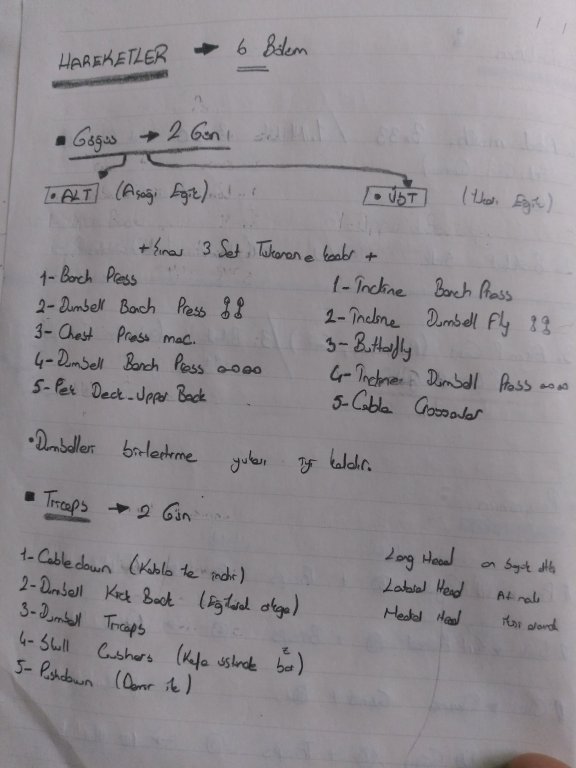 HAREKETLER → 6 Bölüm
■ Göğüs → 2 Gün
• ALT (Aşağı Eğik)
• ÜST (Yukarı Eğik)
+ Şınav 3 Set Tükenene kadar +
1- Bench Press
2- Dumbell Bench Press
3- Chest Press mac.
4- Dumbell Bench Press
5- Pek Deck-Upper Back
1- Incline Bench Press
2- Incline Dumbell Fly
3- Butterfly
4- Incline Dumbell Press
5- Cable Crossover
• Dumbelleri birleştirme yukarı iyi kaldır.
■ Triceps → 2 Gün
1- Cable down (Kablo ile indir)
2- Dumbell Kick Back (Eğilerek
3- Dumbell Triceps
4- Skull Crushers (Kafa üstünde
5- Pushdown (Demir ile)
Long Head
Lateral Head At nalı
Medial Head